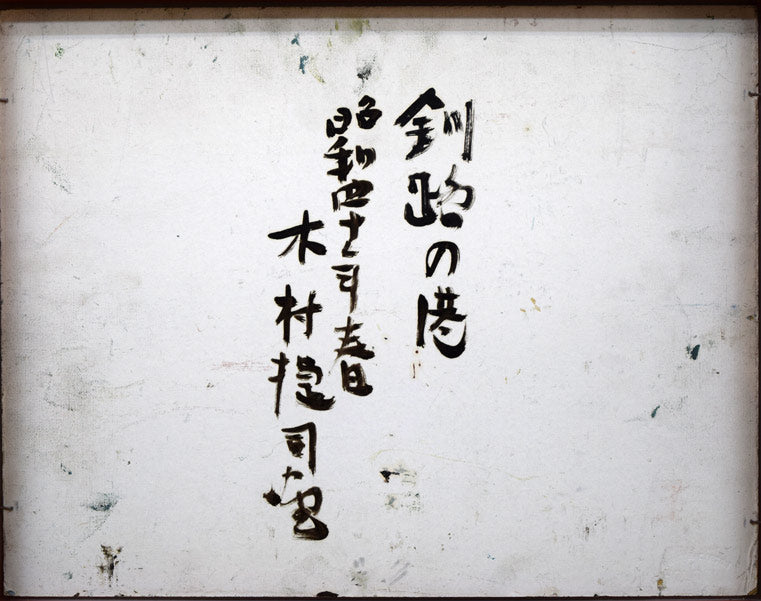 釧路の港
昭和四十二年春日
木村捷司画